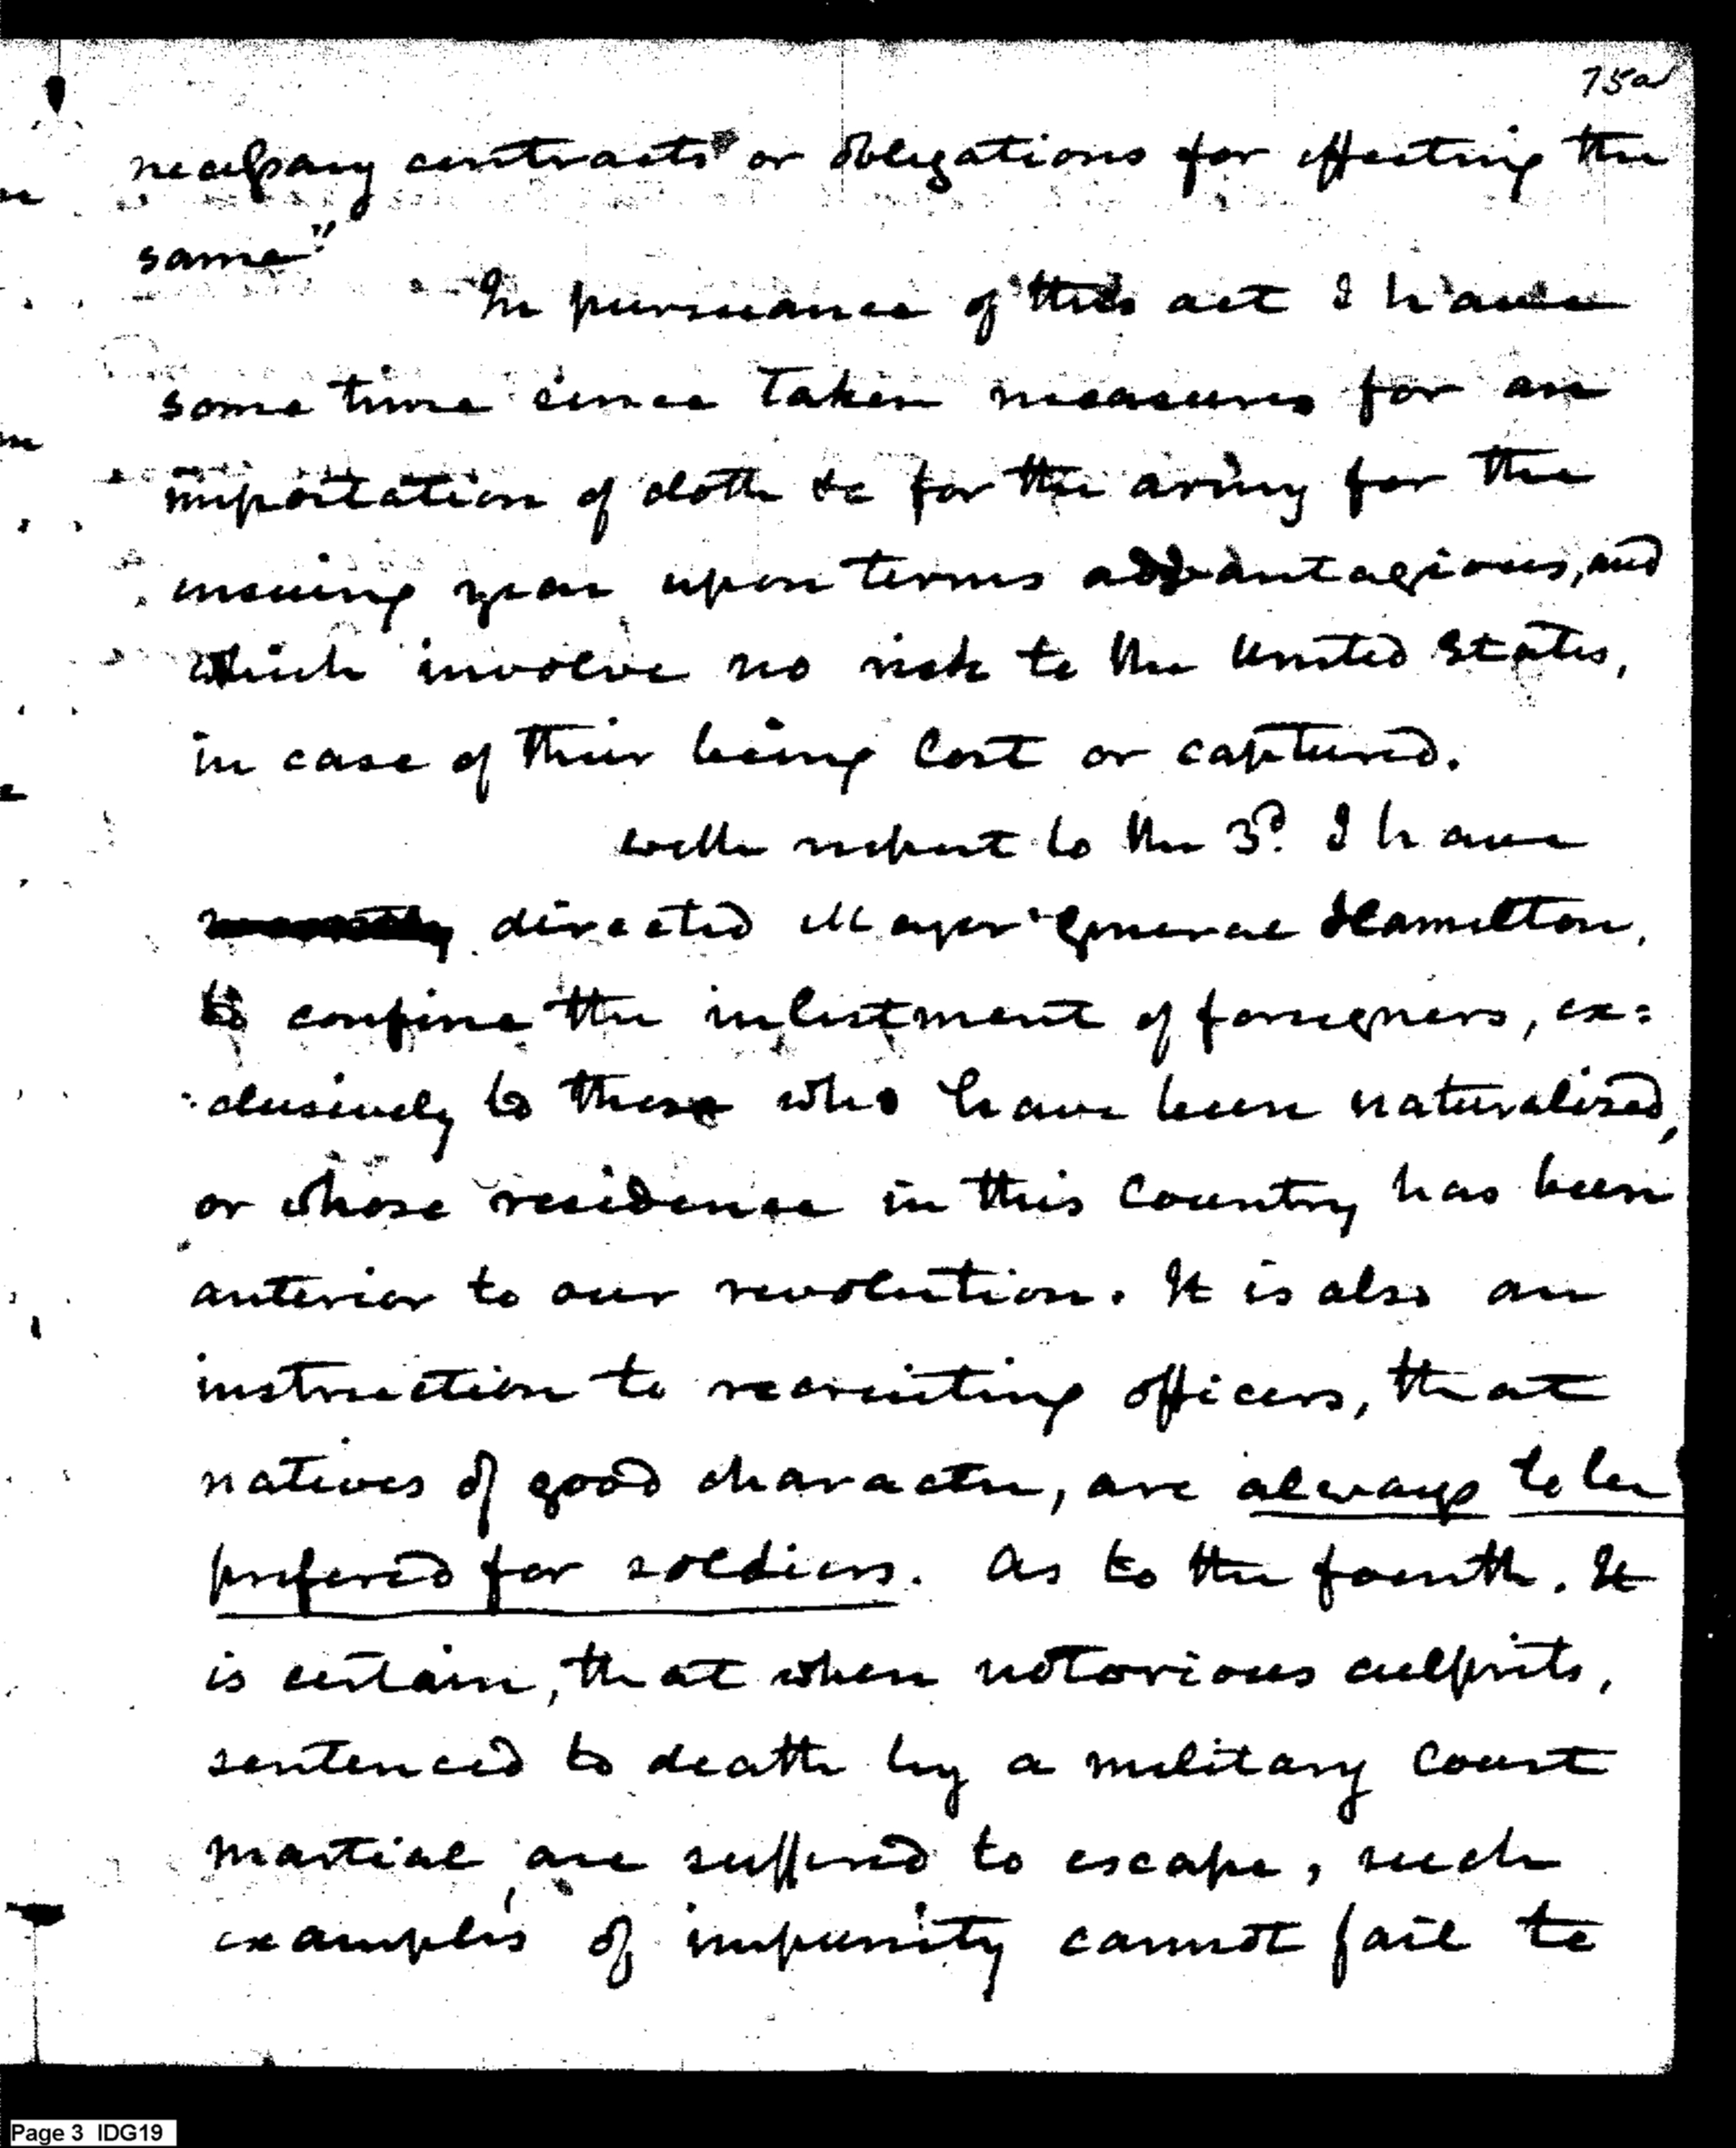 75a
necessary contracts or obligations for effecting the
same"
In pursuance of this act I have
some time since taken measures for an
importation of cloth &c for the army for the
ensuing year upon terms advantagious, and
which involve no risk to the United States,
in case of their being lost or captured.
with respect to the 3d. I have
directed Major General Hamilton,
to confine the inlistment of foreigners, ex=
clusively to those who have been naturalised,
or whose residence in this Country has been
anterior to our revolution. It is also an
instruction to recruiting officers, that
natives of good character, are always to be
prefered for soldiers. As to the fourth. It
is certain, that when notorious culprits,
sentenced to death by a military Court
martial, are suffered to escape, such
examples of impunity cannot fail to
Page 3 IDG19